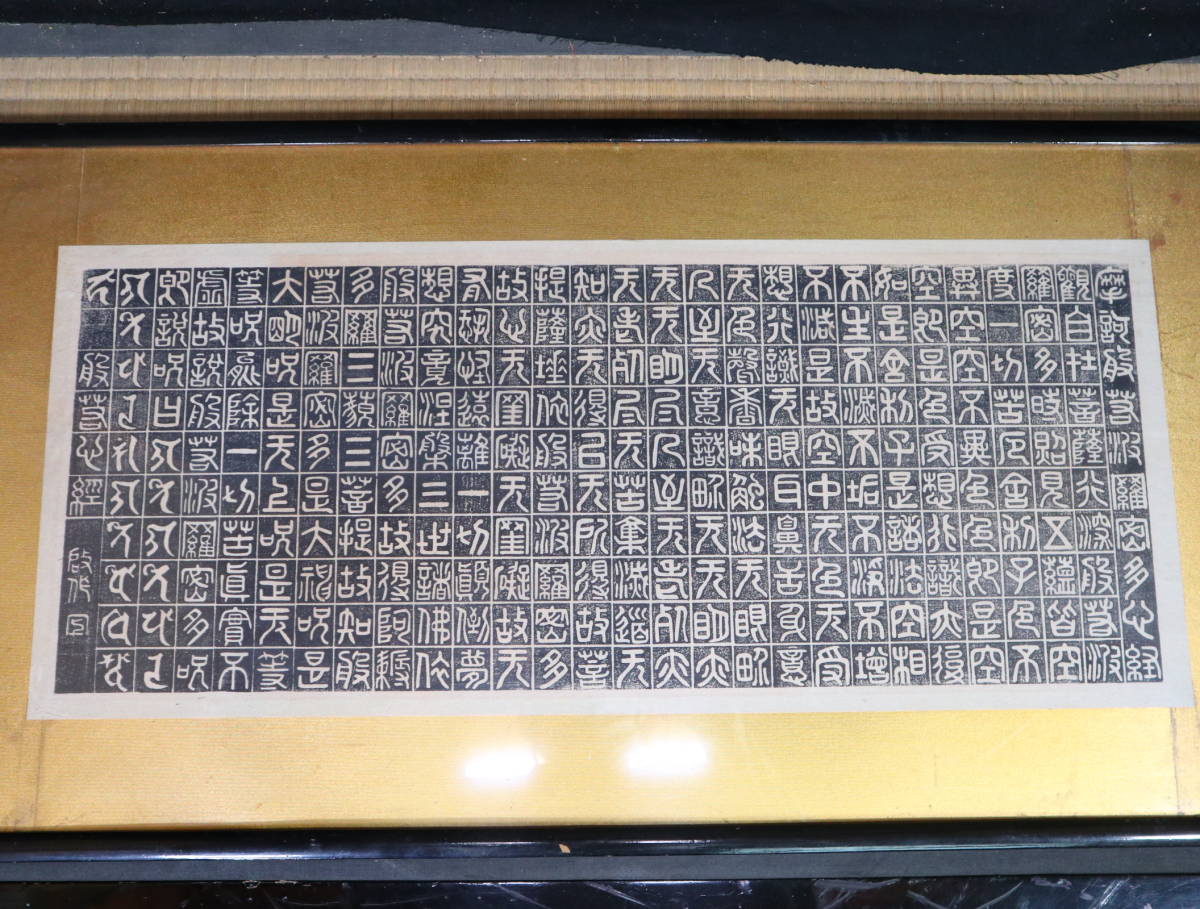 摩訶般若波羅密多心経
觀自在菩薩行深般若波
羅密多時照見五蘊皆空
度一切苦厄舍利子色不
異空空不異色色即是空
空即是色受想行識亦復
如是舍利子是諸法空相
不生不滅不垢不淨不增
不減是故空中无色无受
想行識无眼耳鼻舌身意
无色聲香味觸法无眼界
乃至无意識界无无明亦
无无明盡乃至无老死亦
无老死盡无苦集滅道无
知亦无得以无所得故菩
提薩埵依般若波羅密多
故心无罣礙无罣礙故无
有恐怖遠離一切顛倒夢
想究竟涅槃三世諸佛依
般若波羅密多故得阿耨
多羅三藐三菩提故知般
若波羅密多是大神呪是
大明呪是无上呪是无等
等呪能除一切苦眞實不
虛故說般若波羅密多呪
即說呪曰
般若心經